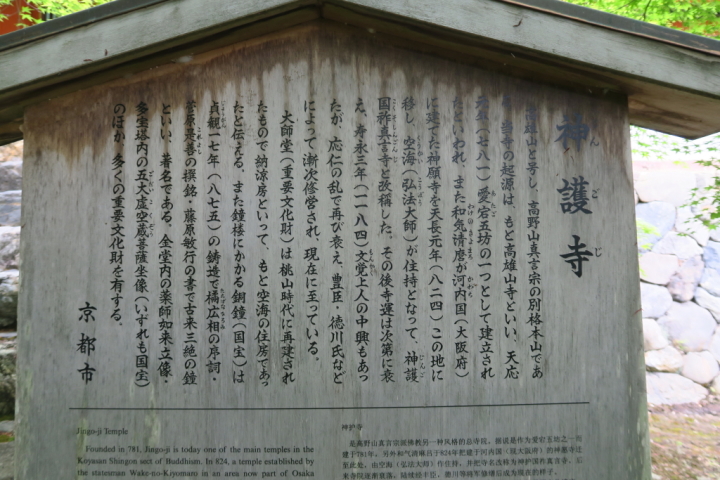 神護寺
高雄山と号し、高野山真言宗の別格本山であ
る。当寺の起源は、もと高雄山寺といい、天応
元年(七八一)愛宕五坊の一つとして建立され
たといわれ、また和気清麿が河内国(大阪府)
に建てた神願寺を天長元年(八二四)この地に
移し、空海(弘法大師)が住持となって、神護
国祚真言寺と改稱した。その後寺運は次第に衰
え、寿永三年(一一八四)文覚上人の中興もあっ
たが、応仁の乱で再び衰え、豊臣、徳川氏など
によって漸次修営され、現在に至っている。
大師堂(重要文化財)は桃山時代に再建され
たもので納涼房といって、もと空海の住房であっ
たと伝える。また鐘楼にかかる銅鐘(国宝)は
貞観一七年(八七五)の鋳造で橘広相の序詞・
菅原是善の撰銘・藤原敏行の書で古来三絶の鐘
といい、著名である。金堂内の薬師如来立像・
多宝塔内の五大虚空蔵菩薩坐像(いずれも国宝)
のほか、多くの重要文化財を有する。
京都市
Jingo-ji Temple
Founded in 781, Jingo-ji is today one of the main temples in the
Koyasan Shingon sect of Buddhism. In 824, a temple established by
the statesman Wake-no-Kiyomaro in an area now part of Osaka
神护寺